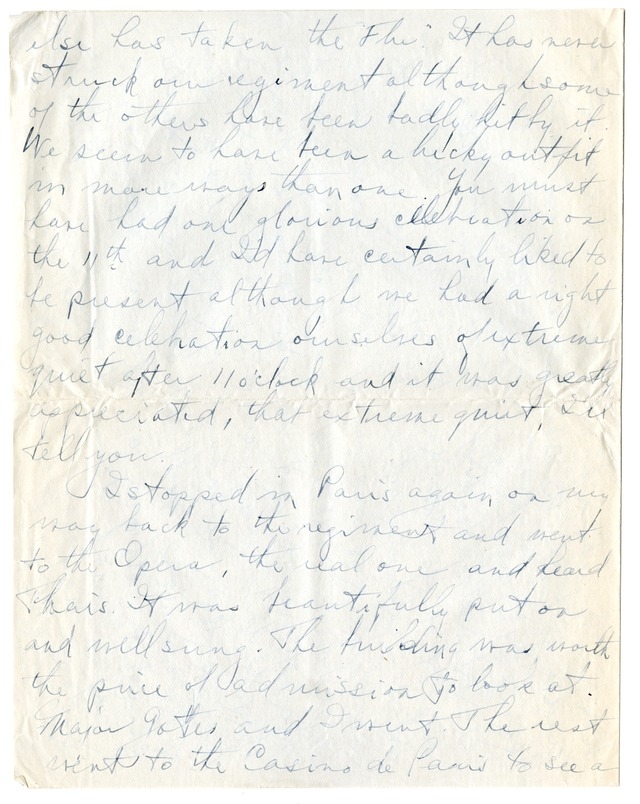 else has taken the "Flu". It has never
struck our regiment although some
of the others have been badly hit by it.
We seem to have been a lucky outfit
in more ways than one. You must
have had one glorious celebration on
the 11th and I'd have certainly liked to
be present although we had a right
good celebration ourselves of extreme
quiet after 11 o'clock and it was greatly
appreciated, that extreme quiet, I'll
tell you.
I stopped in Paris again on my
way back to the regiment and went
to the Opera, the real one and heard
Thais. It was beautifully put on
and well sung. The building was worth
the price of admission to look at.
Major and I went. The rest
went to the Casino de Paris to see a